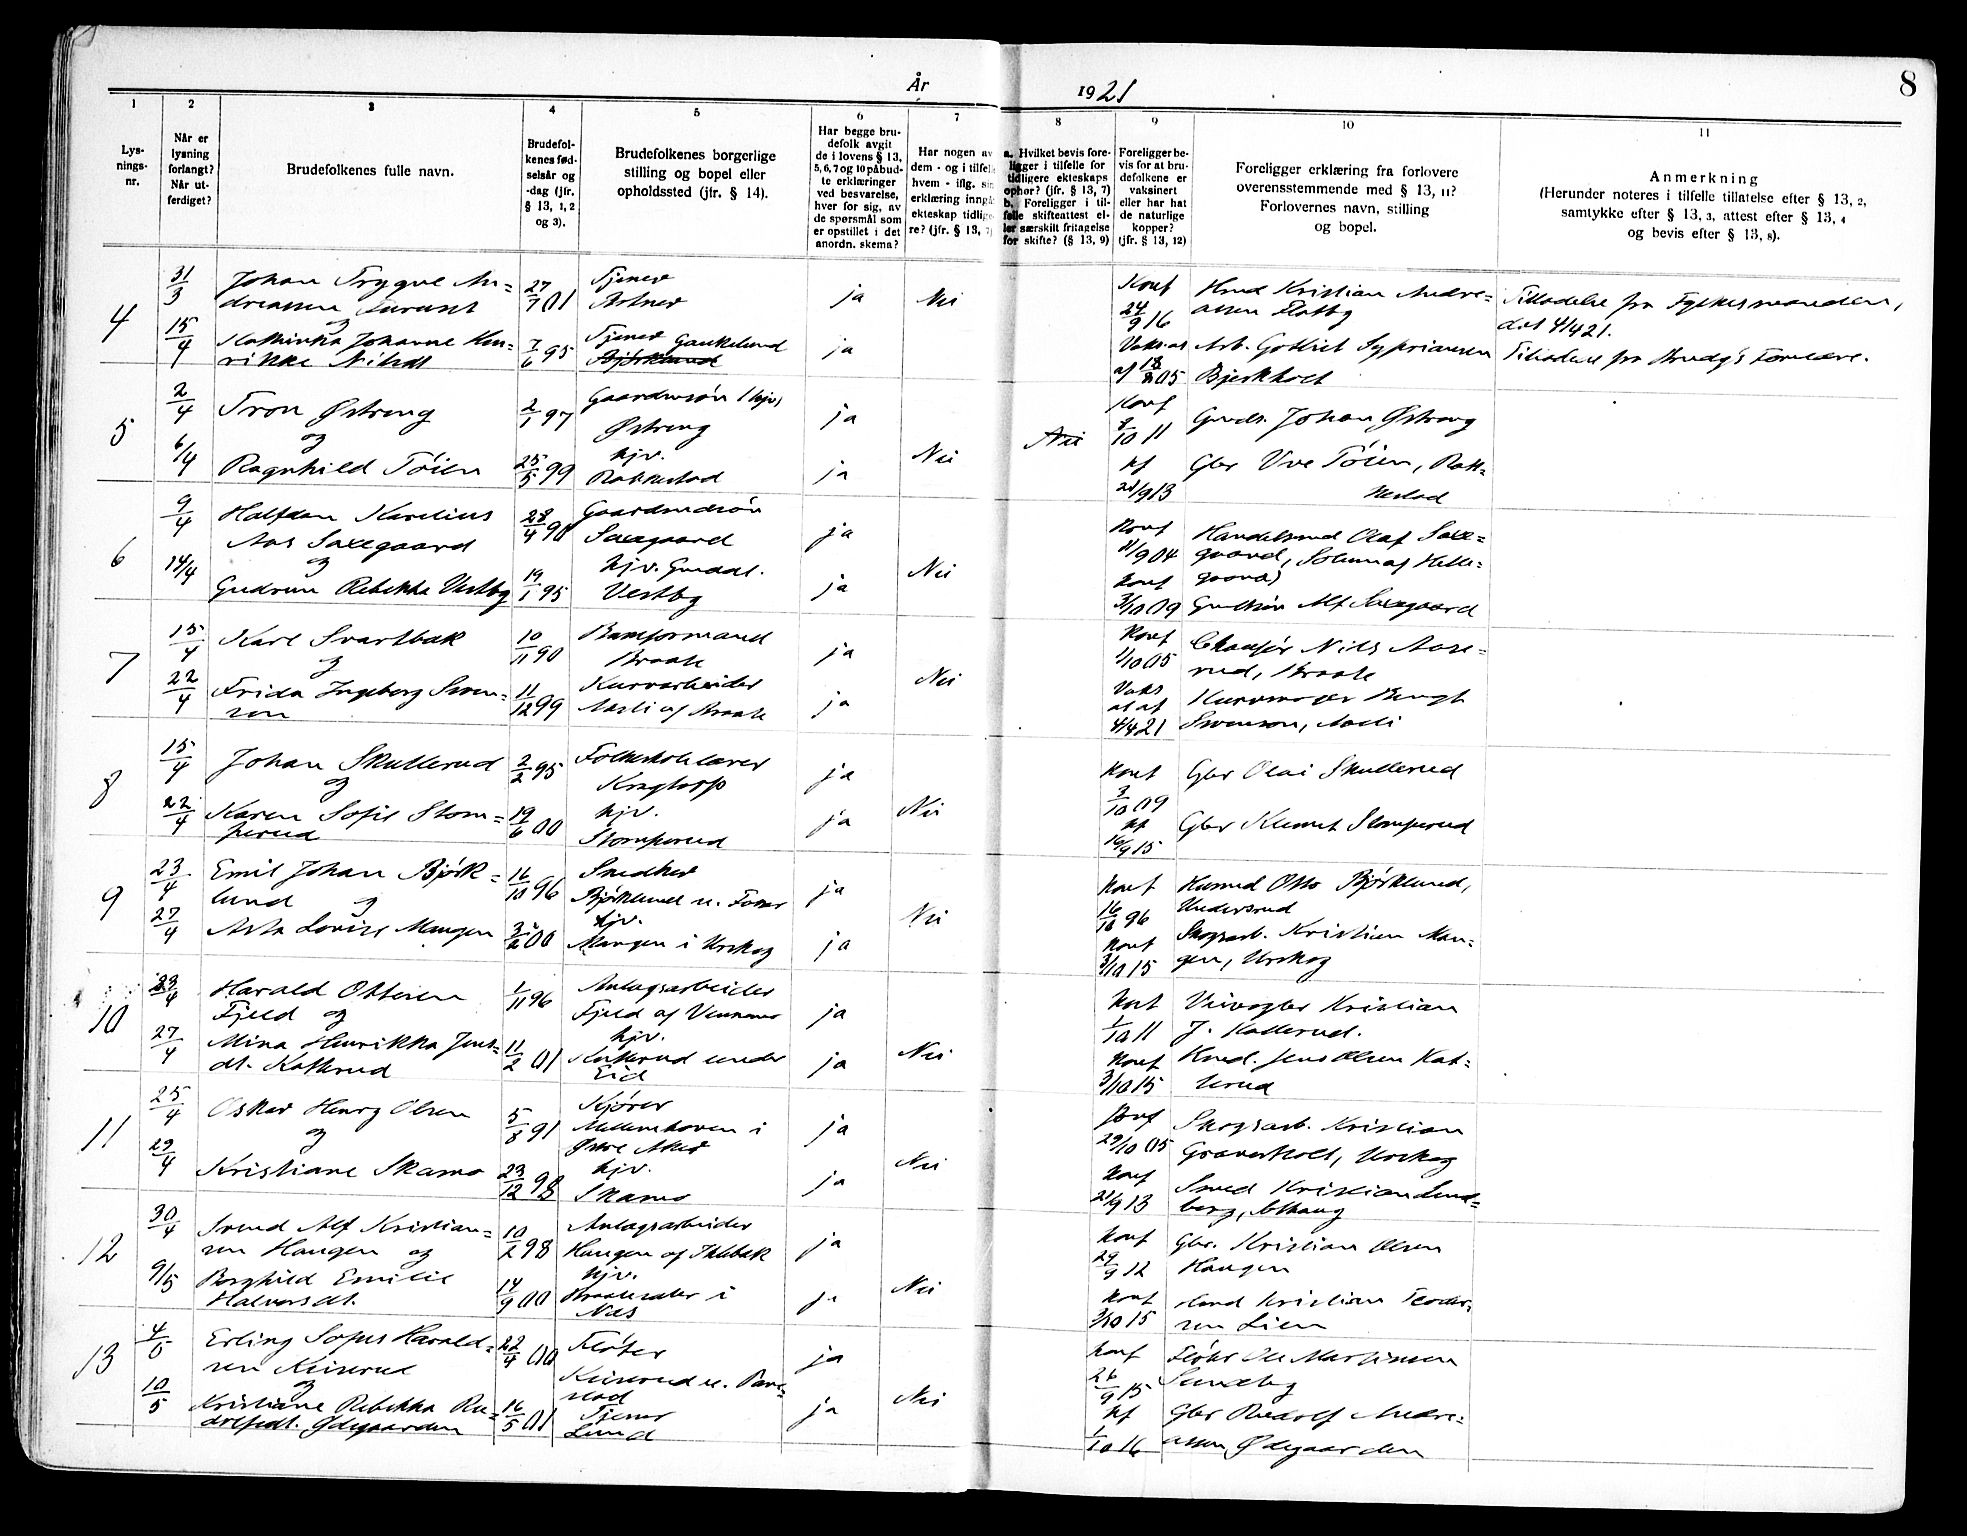 År 1921
8
1
2
3
4
5
6
7
8
9
10
11
Lys-
nings-
nr.
Når er
lysning
forlangt?
Når ut-
ferdiget?
Brudefolkenes fulle navn.
Brudefol-
kenes fød-
selsår og
-dag (jfr.
§ 13, 1, 2
og 3).
Brudefolkenes borgerlige
stilling og bopel eller
opholdssted (jfr. § 14).
Har begge bru-
defolk avgit
de i lovens § 13,
5, 6, 7 og 10 påbud-
te erklæringer
ved besvarelse,
hver for sig, av
de spørsmål som
er opstillet i det
anordn. skema?
Har nogen av
dem - og i tilfelle
hvem - iflg. sin
erklæring inngå
ekteskap tidlige-
re? (jfr. § 13, 7)
a. Hvilket bevis fore-
ligger i tilfelle for
tidligere ekteskaps
ophør? (jfr. § 13, 7)
b. Foreligger i til-
felle skifteattest el-
ler særskilt fritagelse
for skifte? (§ 13, 9)
Foreligger be-
vis for at bru-
defolkene er
vaksinert
eller har hat
de naturlige
kopper?
(jfr. § 13, 12)
Foreligger erklæring fra forlovere
overensstemmende med § 13, 11?
Forlovernes navn, stilling
og bopel.
Anmerkning
(Herunder noteres i tilfelle tillatelse efter § 13, 2,
samtykke efter § 13, 3, attest efter § 13, 4
og bevis efter § 13, 8).
4
31/3
Johan Trygve An=
dreassen
og
27/7 01
Tjener
ja
Nei
Konf
24/9 16
Kristian Andre=
assen Flatby
Tilladelse fra Fylkesmanden,
dat 4/4 21.
15/4
Kathinka Johanne Hen=
rikke
7/6 95
Tjener
Bjørklund
ja
18/8 05
Arb. Gotlief Syprianssen
Bjerkholt
Tilladelse fra Forældre.
5
2/4
Tron Østreng
og
2/1 97
Gaardmsøn (hjv)
Østreng
ja
Nei
Nei
Konf
8/10 11
Gmds. Johan Østreng
6/4
Ragnhild Tøien
25/5 99
hjv.
Rakkestad
ja
kf
21/9 13
Gbr Uve Tøien, Rak=
kestad
6
9/4
Halfdan Karelius
Aas Saxegaard
og
28/4 90
Gaardmdsøn
Saxegaard
ja
Nei
Konf
11/9 04
Handelsmd Olaf Saxe=
gaard,
14/4
Gudrun Rebekka Vestby
19/1 95
hjv. Gmddt.
Vestby
ja
Konf
3/10 09
Gmdsøn Alf Saxegaard
7
15/4
Karl Svartbæk
og
10/11 90
Banformand
Braate
ja
Nei
Konf
1/10 05
Chauffør Nils Aase=
rud, Braate
22/4
Frida Ingeborg Sven=
sen
11/12 99
Kurvarbeider
Aasli af Braate
ja
Vaks
at af
4/4 21
Kurvmager Bengt
Svenson, Aasli
8
15/4
Johan Skullerud
og
2/2 95
Folkeskolelærer
Kragtorp
ja
Nei
Konf
3/10 09
Gbr Olai Skullerud
22/4
Karen Sofie Stom=
perud
19/6 00
hjv.
Stomperud
ja
kf
10/9 15
Gbr Klemet Stomperud
9
23/4
Emil Johan Bjørk=
lund og
16/10 96
Snedker
Bjørklund u. Fosser
ja
Nei
Konf
16/10 96
Husmd Otto Bjørklund,
Undersrud
27/4
Asta Lovise Mangen
hjv.
Mangen i Urskog
ja
Konf
3/10 15
Skogsarb. Kristian Man=
gen, Urskog
10
23/4
Harald Ottesen
Fjeld og
1/11 96
Anlægsarbeider
ja
Nei
Konf
1/10 11
Kristian
J. Katterud.
27/4
Mina Henrikka Jens=
dt. Katterud
11/2 01
hjv.
Katterud under
Eid
ja
Konf
3/10 15
Husmd. Jens Olsen Kat=
terud
11
25/4
Oskar Henry Olsen
og
5/8 91
Kjører
Østre Aker
ja
Nei
Konf
29/10 05
Skogsarb. Kristian
Graverholt, Urskog
29/4
Kristiane Skamo
23/12 98
hjv.
Skamo
ja
Konf
21/9 13
Smed Kristian Lund=
berg,
12
30/4
Svend Alf Kristian=
sen Haugen og
10/2 98
Anlægsarbeider
Haugen af Ihlebæk
ja
Nei
Konf
29/9 12
Gbr. Kristian Olsen
Haugen
9/5
Borghild Emilie
Halvorsdt.
14/9 00
hjv.
Braatesæter i
Nes
ja
Konf
3/10 15
Kristian Teodor=
sen Lien
13
4/5
Erling Sofus Harald=
sen Kinserud
og
22/4 00
Fløter
ja
Nei
Konf
26/9 15
Fløter Ole Martinsen
Sundby
10/5
Kristiane Rebekka Ru=
dolfsdt. Ødegaarden
16/5 01
Tjener
Lund
ja
kf
1/10 16
Gbr Rudolf Andre=
assen Ødegaarden